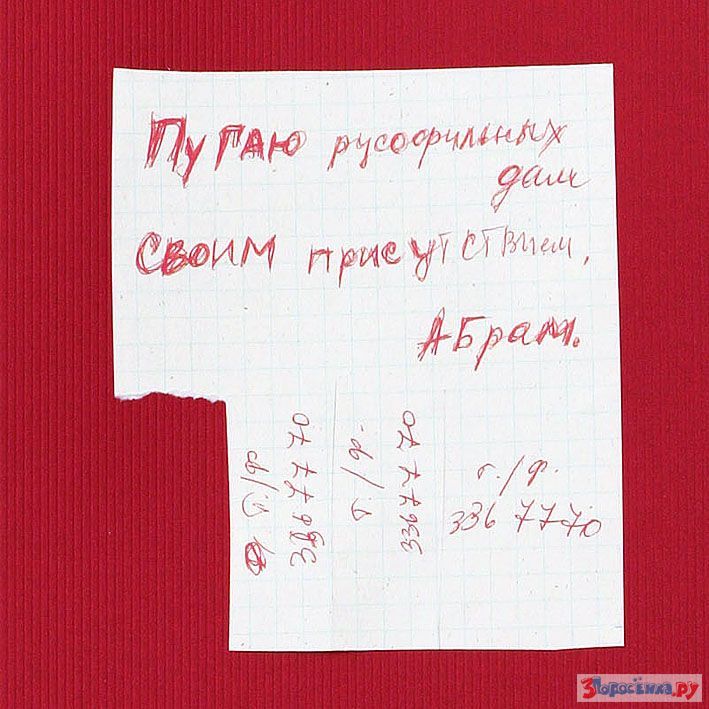 Пугаю русофильных
дам
своим присутствием.
Абрам.
т./ф.
336 77 70
т./ф.
336 77 70
т./ф.
336 77 70
3Поросёнка.ру